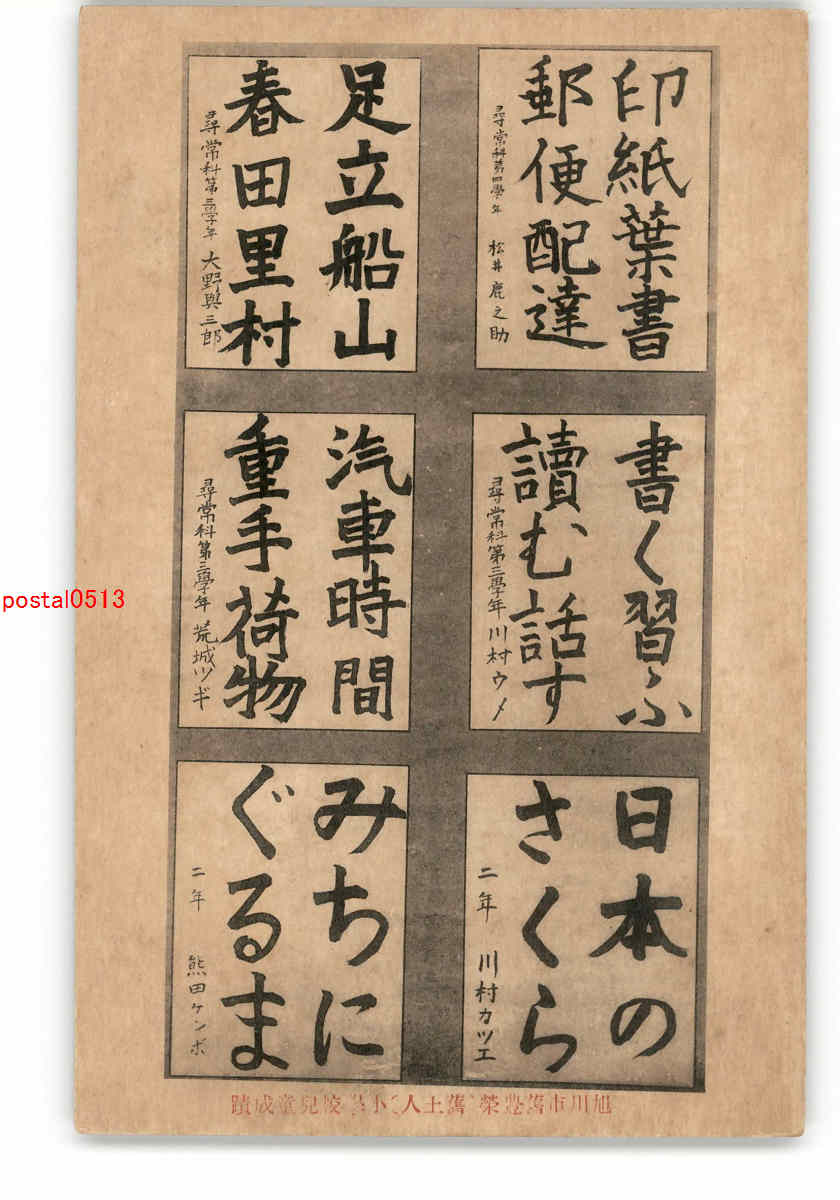 印紙葉書
郵便配達
尋常科第四學年 松井鹿之助
足立船山
春田里村
尋常科第三學年 大野與三郎
書く習ふ
讀む話す
尋常科第三學年 川村ウメ
汽車時間
重手荷物
尋常科第三學年 荒城ツギ
日本の
さくら
二年 川村カツエ
みちに
ぐるま
二年 熊田ケンボ
旭川市舊豊榮(舊土人)小學校兒童成蹟
postal0513